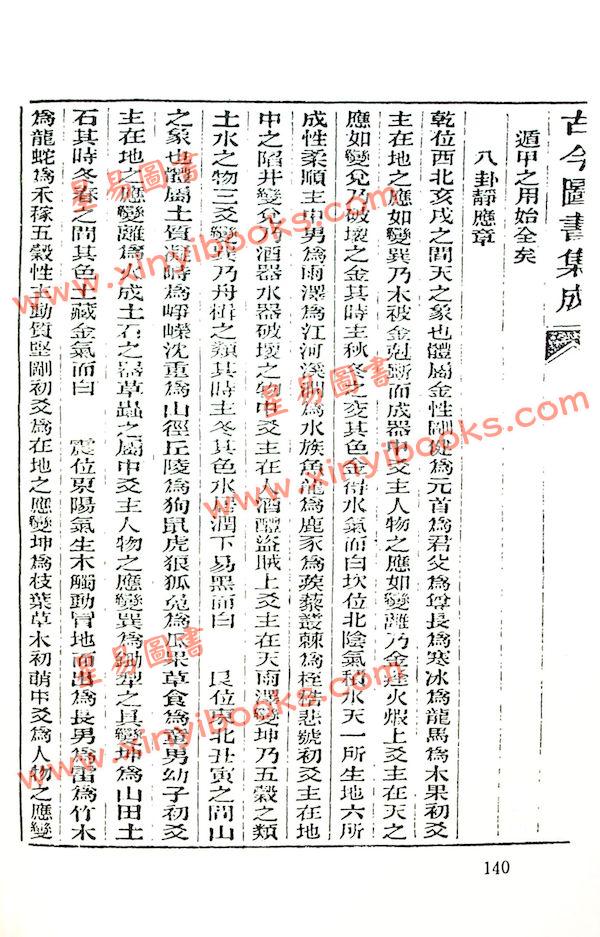 古今圖書集成
遁甲之用始全矣
八卦靜應章
乾位西北亥戌之間天之象也體屬金性剛健為元首為君父為尊長為寒冰為龍馬為木果初爻
主在地之應如變巽乃木被金尅斷而成器中爻主人物之應如變離乃金逢火煅上爻主在天之
應如變兌乃破壞之金其時主秋冬之交其色金得水氣而白坎位北陰氣積水天一所生地六所
成性柔順主中男為雨澤為江河溪澗為水族魚龍為鹿豕為蒺藜叢棘為桎梏悲號初爻主在地
中之陷井變兌乃酒器水器破壞之物中爻主在人酒醴盜賊上爻主在天雨澤變坤乃五穀之類
土水之物三爻變巽乃舟楫之類其時主冬其色水居潤下易黑而白 艮位東北丑寅之間山
之象也體屬土質凝時為崢嶸沈重為山徑丘陵為狗鼠虎狼狐兔為瓜果草食為童男幼子初爻
主在地之應變離為火成土石之器草蟲之屬中爻主人物之應變巽為鋤犁之具變坤為山田土
石其時冬春之間其色土藏金氣而白 震位東陽氣生木觸動冒地而出為長男為雷為竹木
為龍蛇為禾稼五穀性主動質堅剛初爻為在地之應變坤為枝葉草木初萌中爻為人物之應變
140
星易圖書
www.xinyibooks.com
星易圖書
www.xinyibooks.com
星易圖書
www.xinyibooks.com